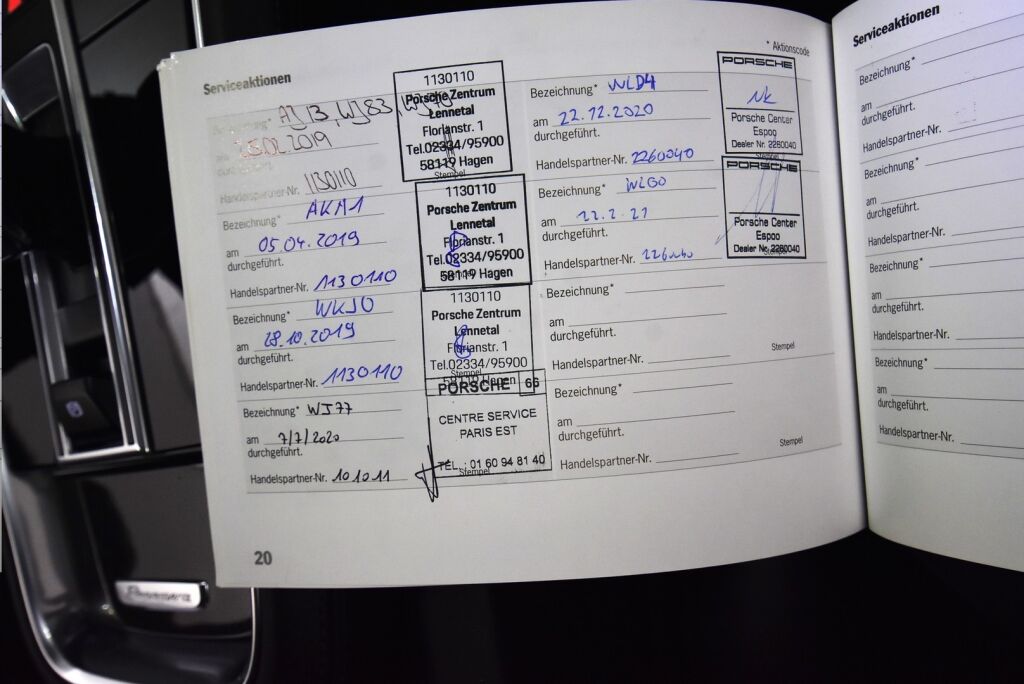 Serviceaktionen
Bezeichnung* AJ13, WJ83,
2019
Handelspartner-Nr. 1130110
1130110
Porsche Zentrum
Lennetal
Florianstr. 1
Tel.02334/95900
58119 Hagen
Stempel
Bezeichnung* AKA1
am 05.04.2019
durchgeführt.
Handelspartner-Nr. 1130110
1130110
Porsche Zentrum
Lennetal
Florianstr. 1
Tel.02334/95900
58119 Hagen
Bezeichnung* WKJ0
am 28.10.2019
durchgeführt.
Handelspartner-Nr. 1130110
1130110
Porsche Zentrum
Lennetal
Florianstr. 1
Tel.02334/95900
58119 Hagen
Stempel
Bezeichnung* WJ77
am 7/7/2020
durchgeführt.
Handelspartner-Nr. 101011
PORSCHE 66
CENTRE SERVICE
PARIS EST
TEL. : 01 60 94 81 40
Stempel
* Aktionscode
Bezeichnung* WLD4
am 22.12.2020
durchgeführt.
Handelspartner-Nr. 2260040
PORSCHE
Porsche Center
Espoo
Dealer Nr. 2260040
Stempel
Bezeichnung* WLG0
am 12.2.21
durchgeführt.
Handelspartner-Nr. 2260040
PORSCHE
Porsche Center
Espoo
Dealer Nr. 2260040
Stempel
Bezeichnung*
am
durchgeführt.
Handelspartner-Nr.
Stempel
Bezeichnung*
am
durchgeführt.
Handelspartner-Nr.
Stempel
20
Serviceaktionen
Bezeichnung*
am
durchgeführt.
Handelspartner-Nr.
Bezeichnung*
am
durchgeführt.
Handelspartner-Nr.
Bezeichnung*
am
durchgeführt.
Handelspartner-Nr.
Bezeichnung*
am
durchgeführt.
Handelspartner-Nr.
Panamera